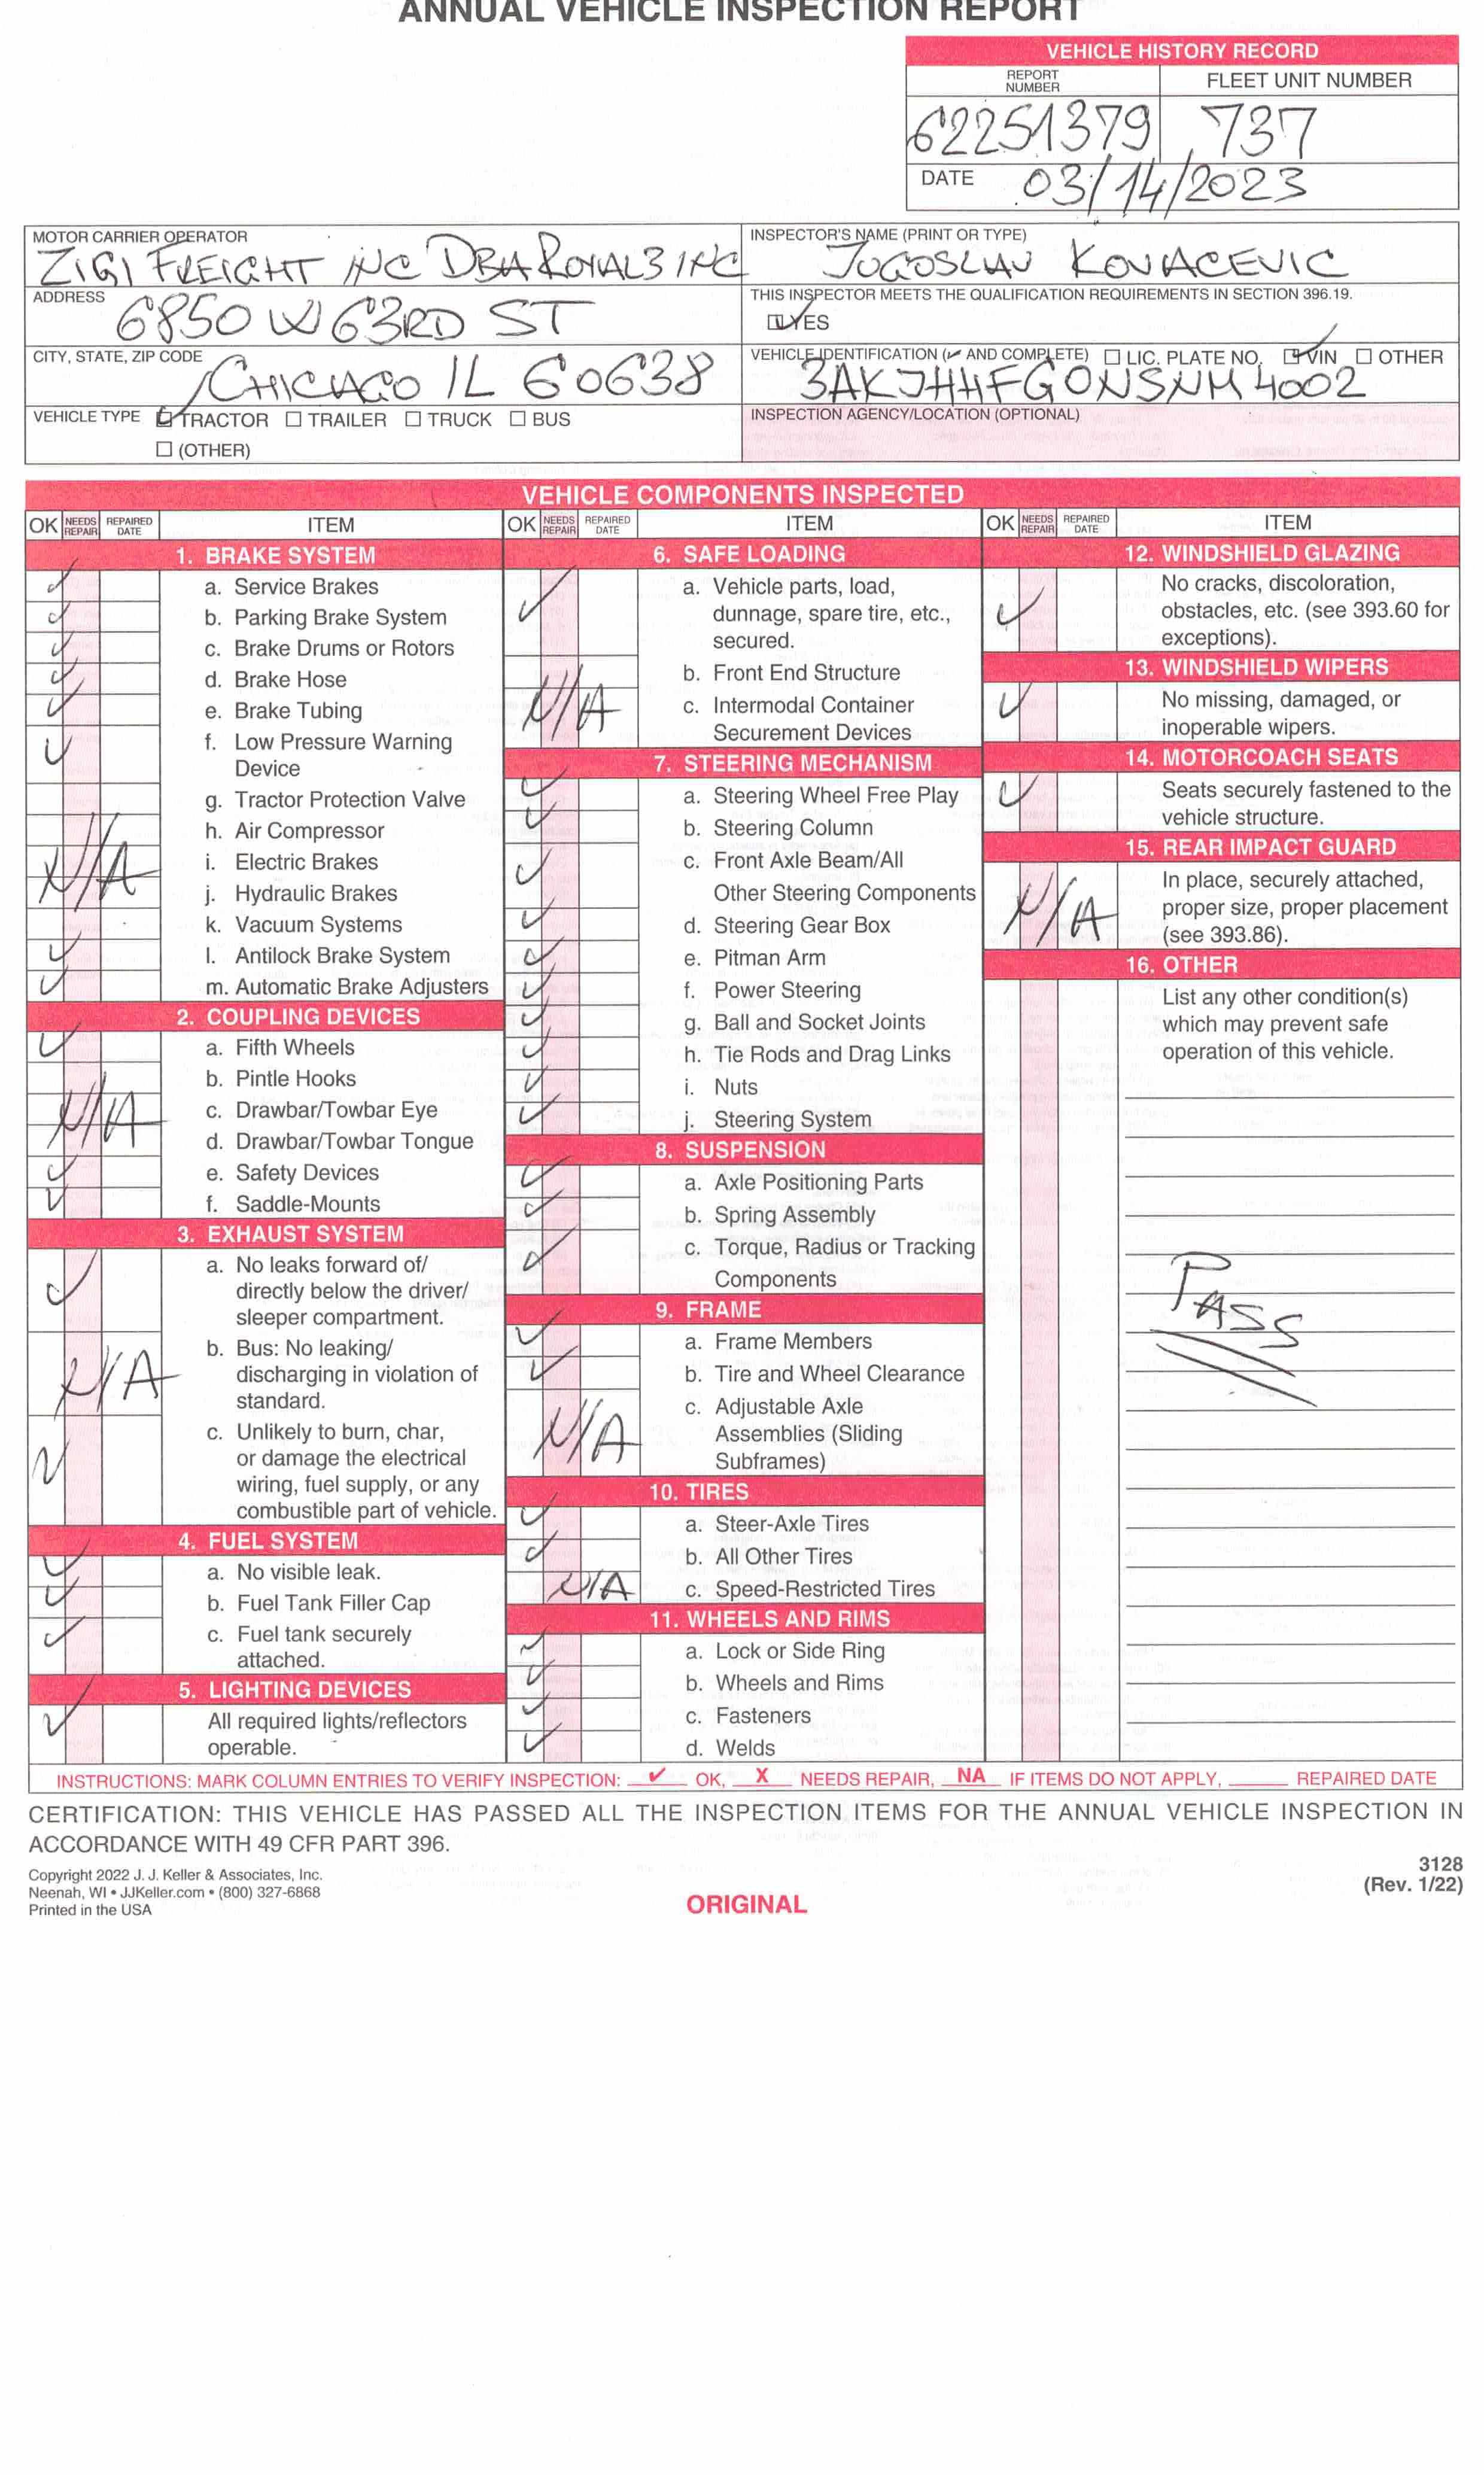 ANNUAL VEHICLE INSPECTION REPORT
VEHICLE HISTORY RECORD
REPORT NUMBER
FLEET UNIT NUMBER
62251379
737
DATE 03/14/2023
MOTOR CARRIER OPERATOR
ZIGI FREIGHT INC DBA ROYAL3 INC
INSPECTOR'S NAME (PRINT OR TYPE)
JUGOSLAV KOVACEVIC
ADDRESS
6850 W 63RD ST
THIS INSPECTOR MEETS THE QUALIFICATION REQUIREMENTS IN SECTION 396.19.
YES
CITY, STATE, ZIP CODE
CHICAGO IL 60638
VEHICLE IDENTIFICATION (✓ AND COMPLETE) LIC. PLATE NO. VIN OTHER
3AKJHHFG0NSNM4002
VEHICLE TYPE TRACTOR TRAILER TRUCK BUS
(OTHER)
INSPECTION AGENCY/LOCATION (OPTIONAL)
VEHICLE COMPONENTS INSPECTED
OK NEEDS REPAIR REPAIRED DATE ITEM
1. BRAKE SYSTEM
a. Service Brakes
b. Parking Brake System
c. Brake Drums or Rotors
d. Brake Hose
e. Brake Tubing
f. Low Pressure Warning
Device
g. Tractor Protection Valve
h. Air Compressor
N/A
i. Electric Brakes
j. Hydraulic Brakes
k. Vacuum Systems
l. Antilock Brake System
m. Automatic Brake Adjusters
2. COUPLING DEVICES
a. Fifth Wheels
b. Pintle Hooks
N/A
c. Drawbar/Towbar Eye
d. Drawbar/Towbar Tongue
e. Safety Devices
f. Saddle-Mounts
3. EXHAUST SYSTEM
a. No leaks forward of/
directly below the driver/
sleeper compartment.
b. Bus: No leaking/
N/A
discharging in violation of
standard.
c. Unlikely to burn, char,
or damage the electrical
wiring, fuel supply, or any
combustible part of vehicle.
4. FUEL SYSTEM
a. No visible leak.
b. Fuel Tank Filler Cap
c. Fuel tank securely
attached.
5. LIGHTING DEVICES
All required lights/reflectors
operable.
OK NEEDS REPAIR REPAIRED DATE ITEM
6. SAFE LOADING
a. Vehicle parts, load,
dunnage, spare tire, etc.,
secured.
b. Front End Structure
N/A
c. Intermodal Container
Securement Devices
7. STEERING MECHANISM
a. Steering Wheel Free Play
b. Steering Column
c. Front Axle Beam/All
Other Steering Components
d. Steering Gear Box
e. Pitman Arm
f. Power Steering
g. Ball and Socket Joints
h. Tie Rods and Drag Links
i. Nuts
j. Steering System
8. SUSPENSION
a. Axle Positioning Parts
b. Spring Assembly
c. Torque, Radius or Tracking
Components
9. FRAME
a. Frame Members
b. Tire and Wheel Clearance
c. Adjustable Axle
N/A
Assemblies (Sliding
Subframes)
10. TIRES
a. Steer-Axle Tires
b. All Other Tires
N/A c. Speed-Restricted Tires
11. WHEELS AND RIMS
a. Lock or Side Ring
b. Wheels and Rims
c. Fasteners
d. Welds
OK NEEDS REPAIR REPAIRED DATE ITEM
12. WINDSHIELD GLAZING
No cracks, discoloration,
obstacles, etc. (see 393.60 for
exceptions).
13. WINDSHIELD WIPERS
No missing, damaged, or
inoperable wipers.
14. MOTORCOACH SEATS
Seats securely fastened to the
vehicle structure.
15. REAR IMPACT GUARD
In place, securely attached,
N/A
proper size, proper placement
(see 393.86).
16. OTHER
List any other condition(s)
which may prevent safe
operation of this vehicle.
PASS
INSTRUCTIONS: MARK COLUMN ENTRIES TO VERIFY INSPECTION: ✓ OK, X NEEDS REPAIR, NA IF ITEMS DO NOT APPLY, REPAIRED DATE
CERTIFICATION: THIS VEHICLE HAS PASSED ALL THE INSPECTION ITEMS FOR THE ANNUAL VEHICLE INSPECTION IN
ACCORDANCE WITH 49 CFR PART 396.
Copyright 2022 J. J. Keller & Associates, Inc.
Neenah, WI • JJKeller.com • (800) 327-6868
Printed in the USA
ORIGINAL
3128
(Rev. 1/22)